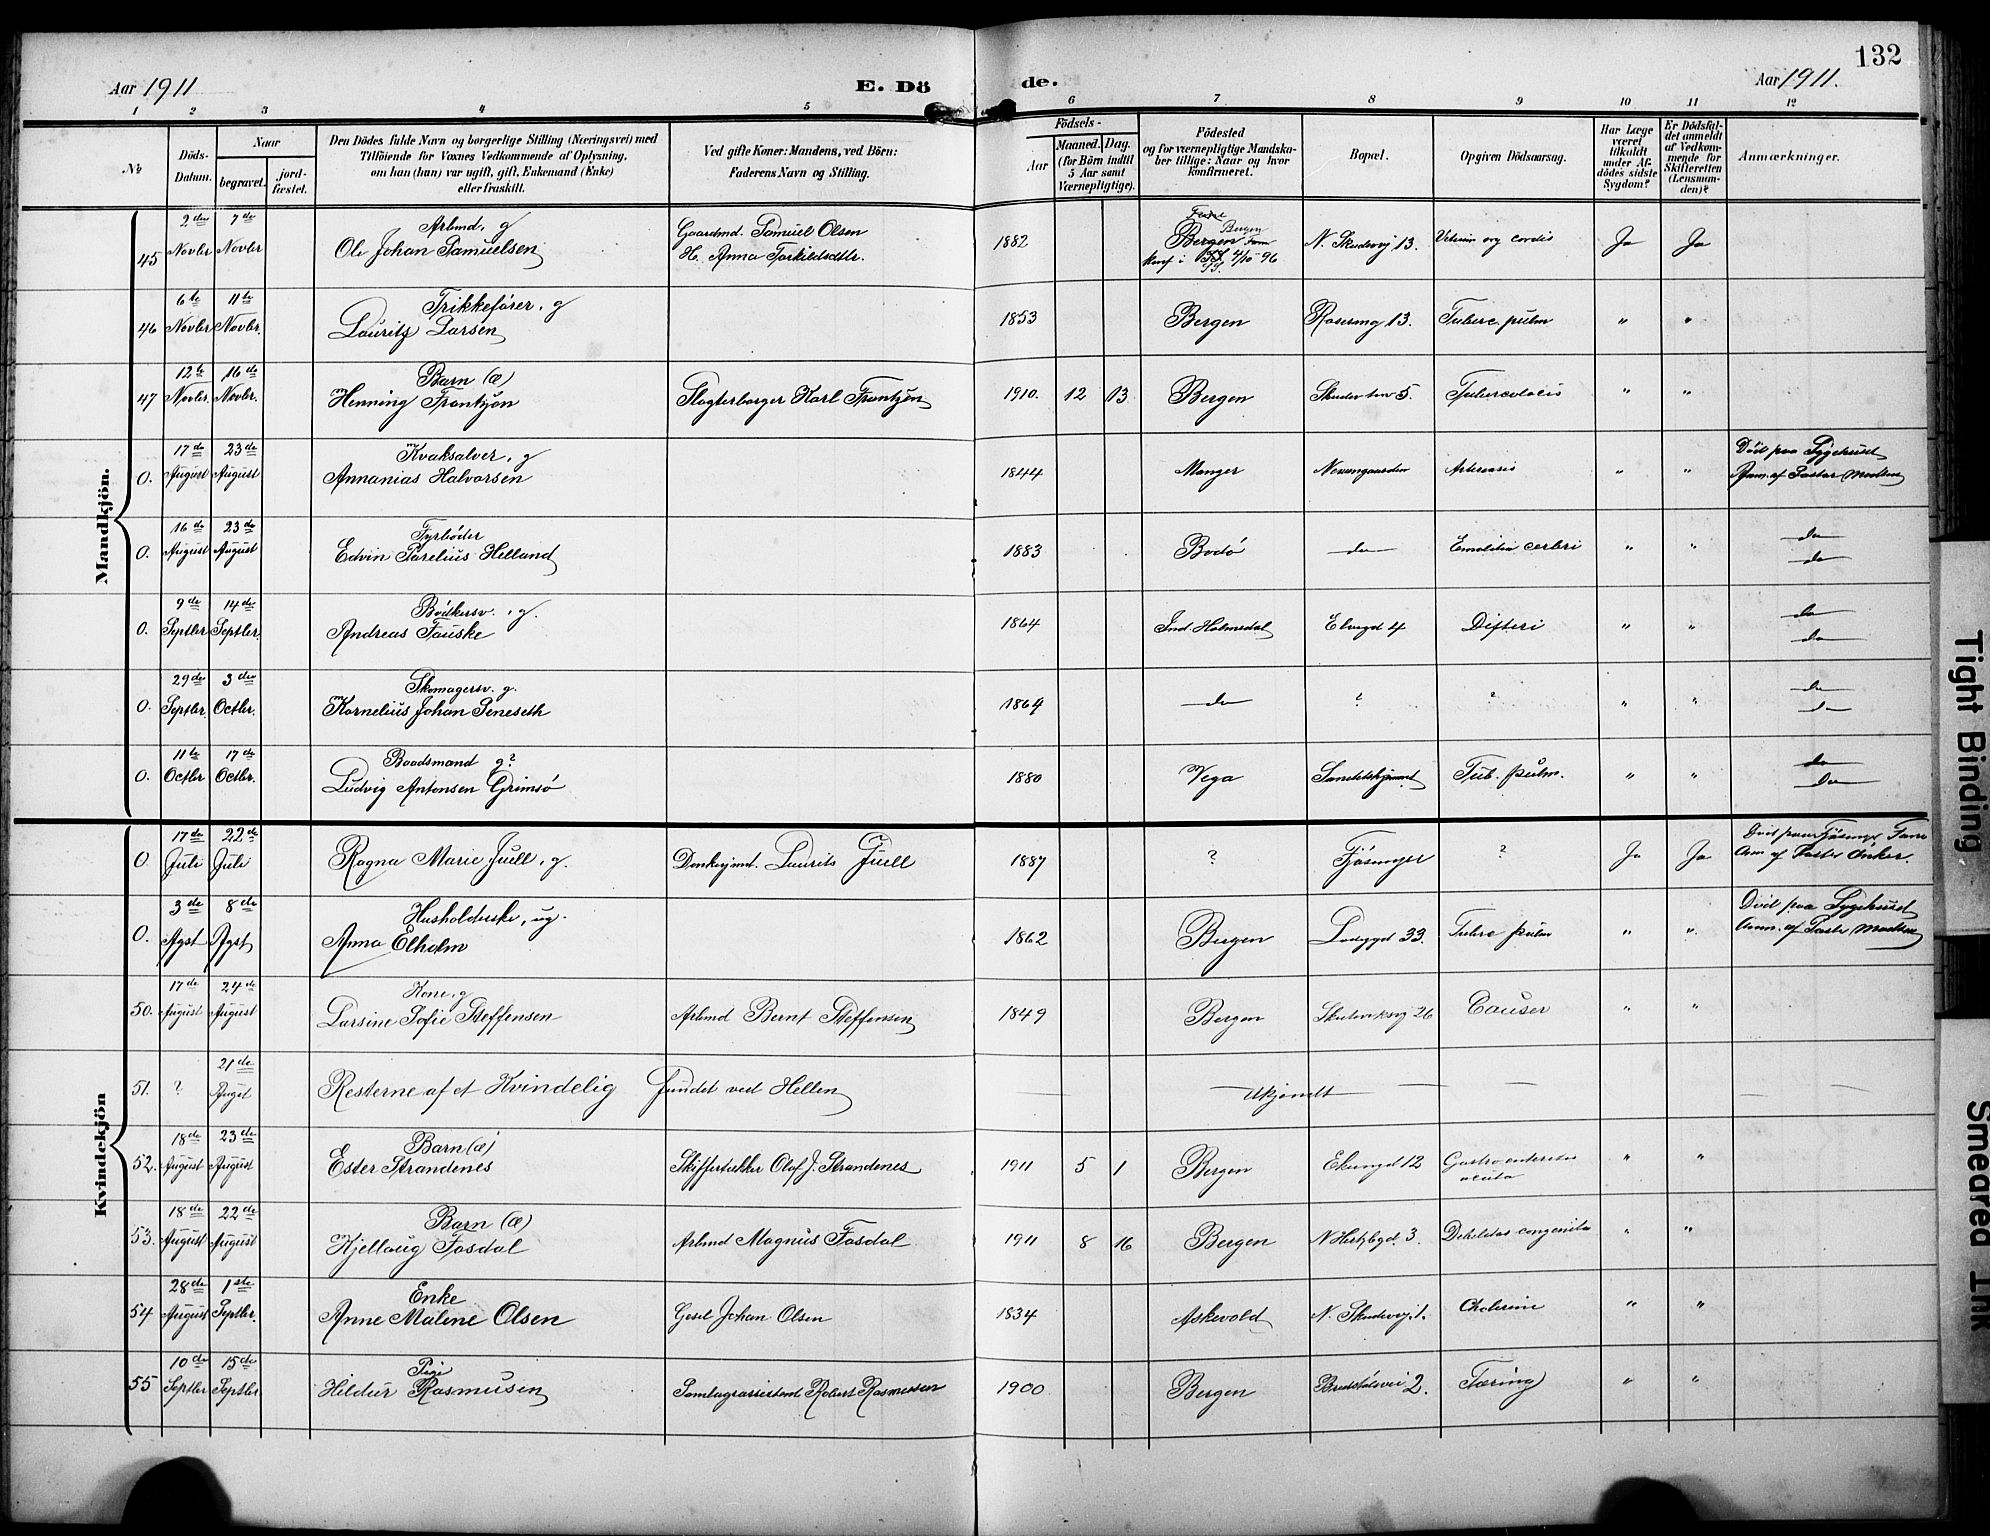 132
Aar 1911
E. Dö
de.
Aar 1911.
1 2 3 4 5 6 7 8 9 10 11 12
No
Döds-Datum.
Naar
begravet.
jord-fæstet.
Den Dödes fulde Navn og borgerlige Stilling (Næringsvei) med
Tilföiende for Voxnes Vedkommende af Oplysning,
om han (hun) var ugift, gift, Enkemand (Enke)
eller fraskilt.
Ved gifte Koner: Mandens, ved Börn:
Faderens Navn og Stilling.
Födsels-
Aar
Maaned. Dag.
(for Börn indtil
5 Aar samt
Værnepligtige).
Födested
og for værnepligtige Mandska-
ber tillige: Naar og hvor
konfirmeret.
Bopæl.
Opgiven Dödsaarsag.
Har Læge
været
tilkaldt
under Af-
dödes sidste
Sygdom?
Er Dödsfal-
det anmeldt
af Vedkom-
mende for
Skifteretten
(Lensman-
den)?
Anmærkninger.
Mandkjön.
45 2den Novbr 7de Novbr Arbmd, g
Ole Johan Samuelsen Gaardmd. Samuel Olsen
H. Anna Torkildsdtr. 1882 Bergen konf i 4/10-96 N. Skudevij 13. Vitium org cordis Ja Ja
46 6te Novbr 11te Novbr. Trikkefører, g
Lauritz Larsen 1853 Bergen 13. Tuberc pulm " "
47 12te Novbr. 16de Novbr. Barn (æ)
Henning Frantzon Slagterborger Karl Frantzon 1910. 12 13 Bergen 5. Tuberculosis " "
0. 17de August 23de August Kvaksalver, g
Annanias Halvorsen 1844 Manger " " Död paa Sygehuset
Anm. af Pastor Madsen
0. 16de August 23de August Fyrbøder
Edvin Parelius Helland 1883 Bodö do cerbri " " do
do
0. 9de Septbr 14de Septbr. Bödkersv., g.
Andreas Fauske 1864 Ind Holmedal Elvegd 4 Difteri " " do
do
0. 29de Septbr. 3den Octbr. Skomagersv. g.
Kornelius Johan Seneseth 1864 do ? ? " " do
do
0. 11te Octbr 17de Octbr. Baadsmand g?
Ludvig Antonsen Grimsö 1880 Vega Tub. pulm. " " do
do
Kvindekjön
0 17de Juli 22de Juli Ragna Marie Juell, g. Laurits Juell 1887 ? Fjösanger ? Ja Ja
Anm af Pastor
0. 3de Agst 8de Agst Husholderske, ug.
Anna Elholm 1862 Bergen 33. Tuberc pulm " " Död paa Sygehuset
Anm. af Pastor Madsen
50. 17de August 24de August Kone, g
Larsine Sofie Steffensen Arbmd Bernt Steffensen 1849 Bergen Skuteviksvj 26 Cancer " "
51. ? 21de August Resterne af et Kvindelig fundet ved Hellen Ukjendt
52. 18de August 23de August Barn (æ)
Ester Strandenes Skiffertækker Olaf J. Strandenes 1911 5 1 Bergen 12 Gastro enteritis
acuta " "
53. 18de August 22de August Barn (æ)
Kjellaug Fosdal Arbmd Magnus Fosdal 1911 8 16 Bergen 3. Debilitas congenita " "
54 28de August 1ste Septbr. Enke
Anne Malene Olsen Gesel Johan Olsen 1834 Askevold N. Skudevj. 1. Cholerine " "
55 10de Septbr 15de Septbr Pige
Hildur Rasmusen Robert Rasmussen 1900 Bergen 2. Tæring " "
Tight Binding
Smeared Ink